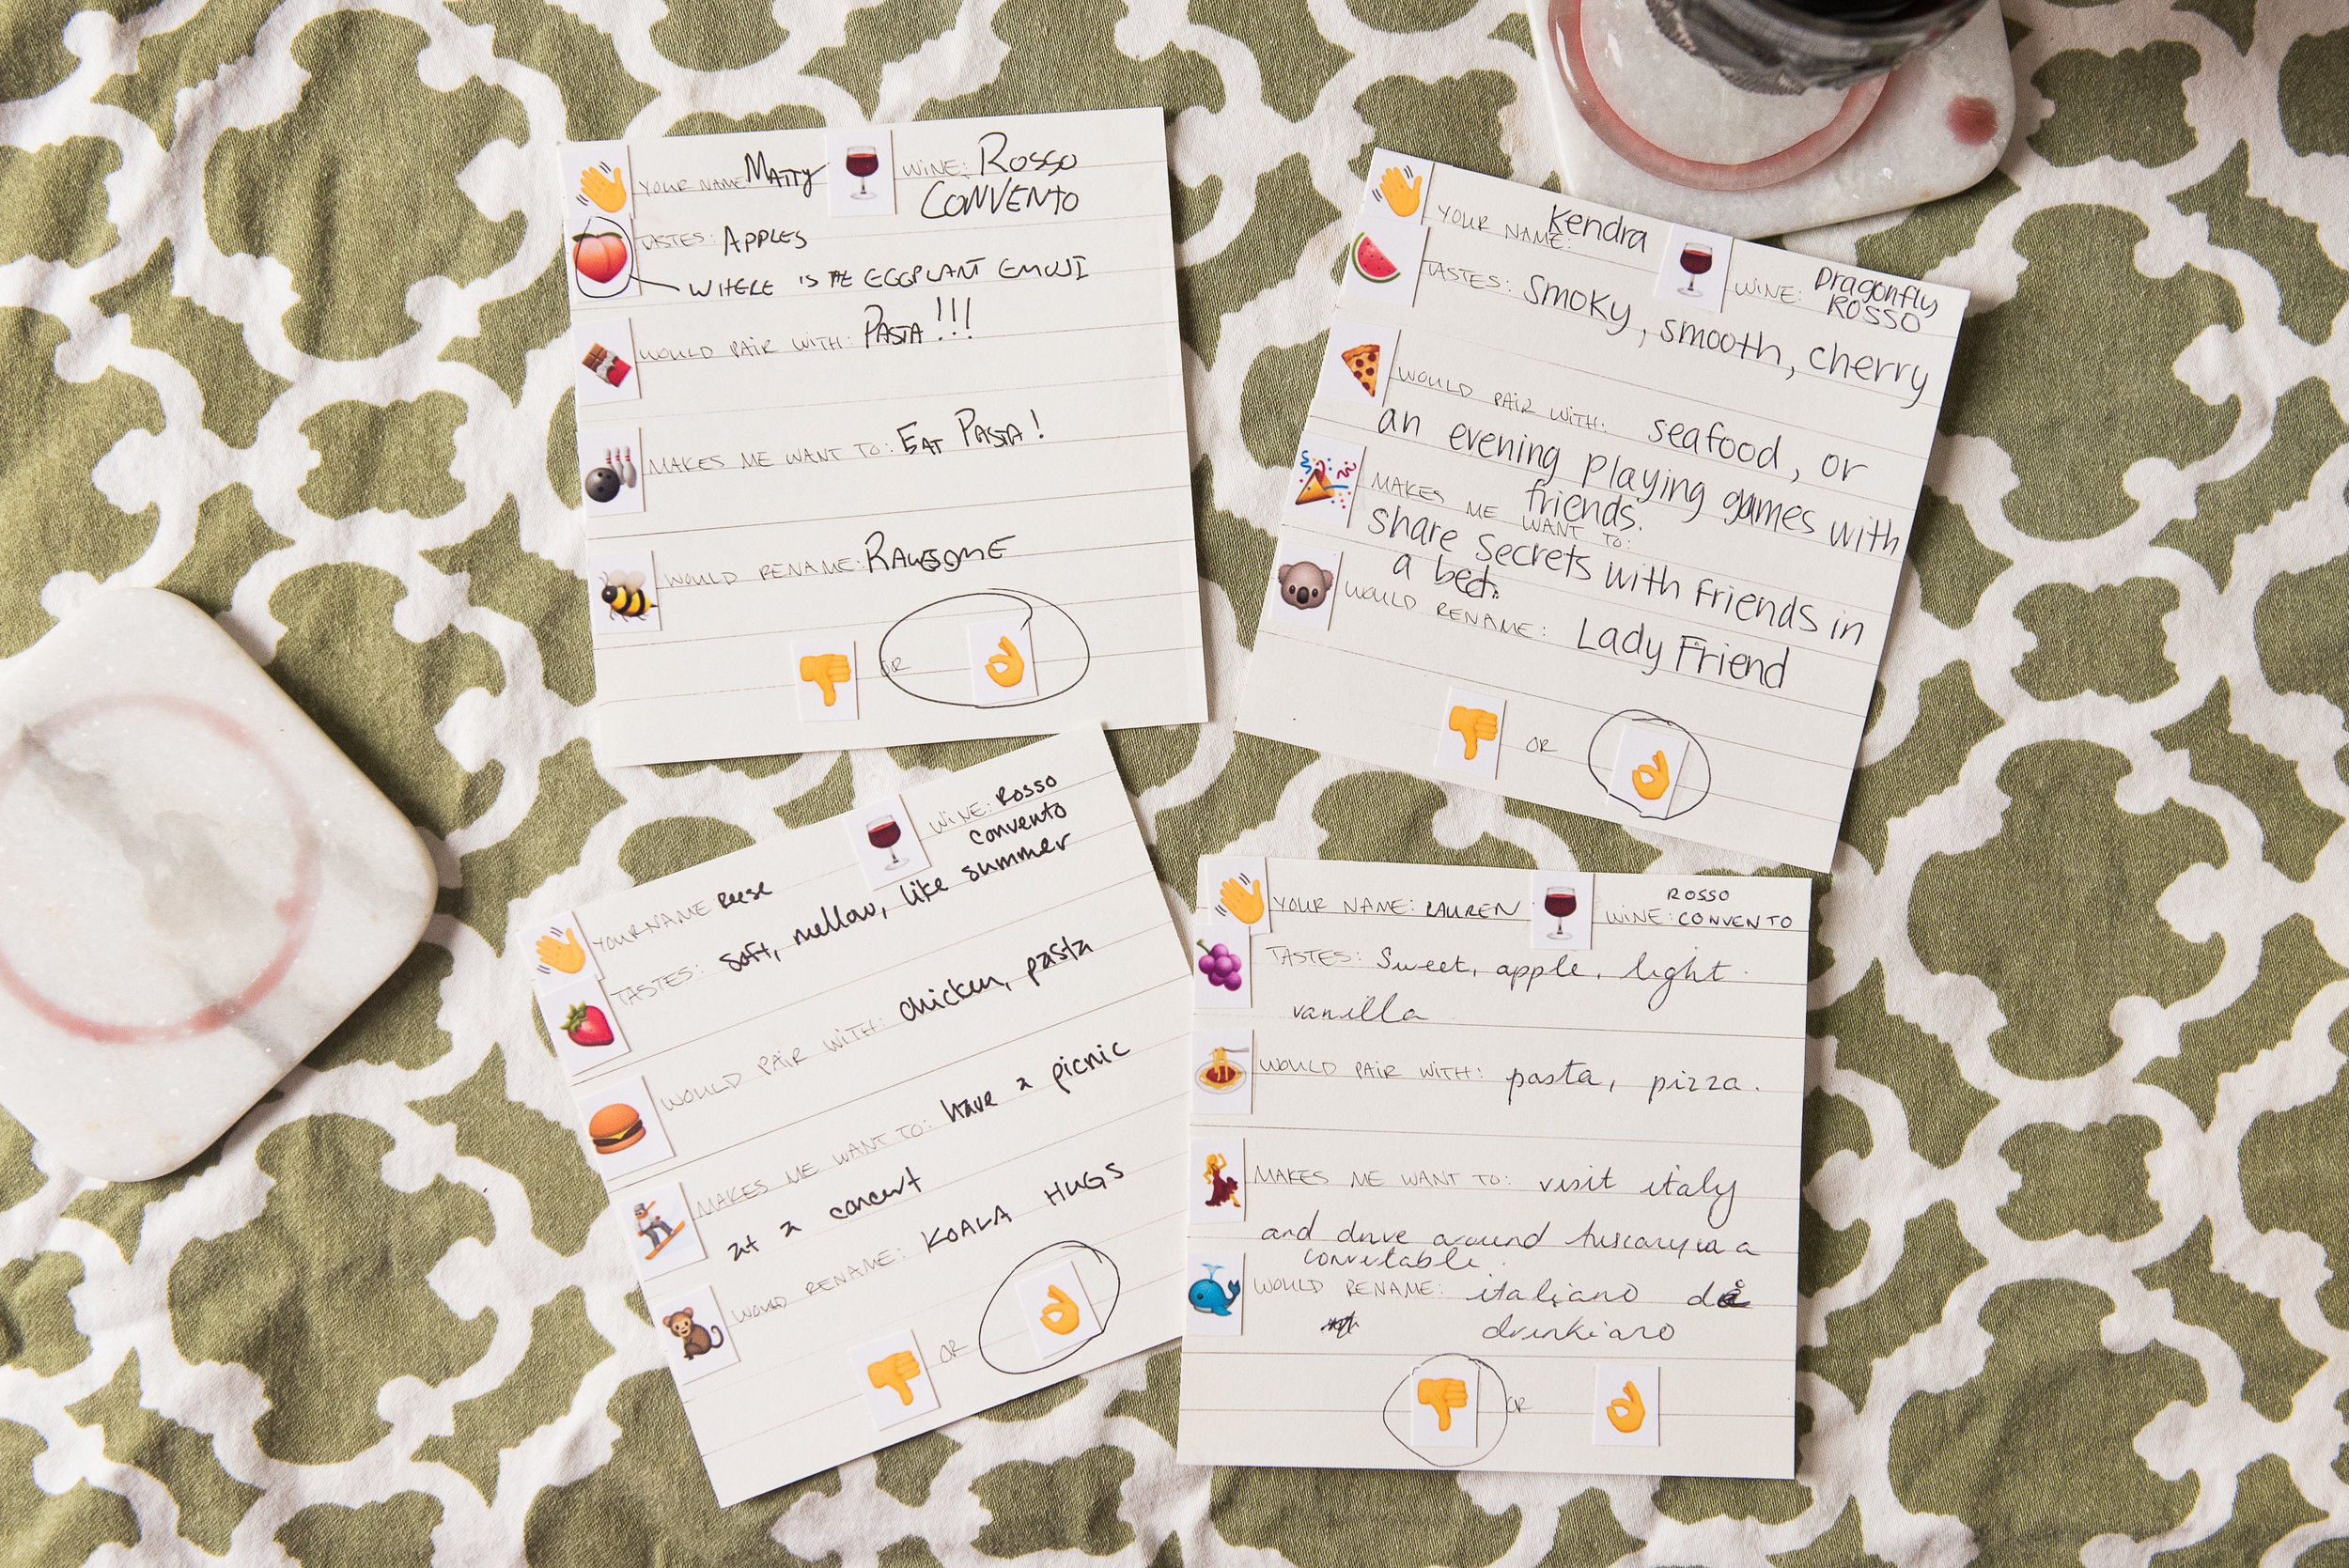 YOUR NAME: MATTY WINE: ROSSO
CONVENTO
TASTES: APPLES
WHERE IS THE EGGPLANT EMOJI
WOULD PAIR WITH: PASTA!!!
MAKES ME WANT TO: EAT PASTA!
WOULD RENAME: RAWESOME
OR
YOUR NAME: Kendra WINE: Dragonfly
ROSSO
TASTES: Smoky, smooth, cherry
WOULD PAIR WITH: seafood, or
an evening playing games with
friends.
MAKES ME WANT TO:
share secrets with friends in
a bed.
WOULD RENAME: Lady Friend
OR
YOUR NAME reese WINE: Rosso
convento
TASTES: soft, mellow, like summer
WOULD PAIR WITH: chicken, pasta
MAKES ME WANT TO: have a picnic
at a concert
WOULD RENAME: KOALA HUGS
OR
YOUR NAME: LAUREN WINE: ROSSO
CONVENTO
TASTES: Sweet, apple, light.
vanilla
WOULD PAIR WITH: pasta, pizza.
MAKES ME WANT TO: visit italy
and drive around tuscany in a
convertable.
WOULD RENAME: italiano de
drinkiano
OR